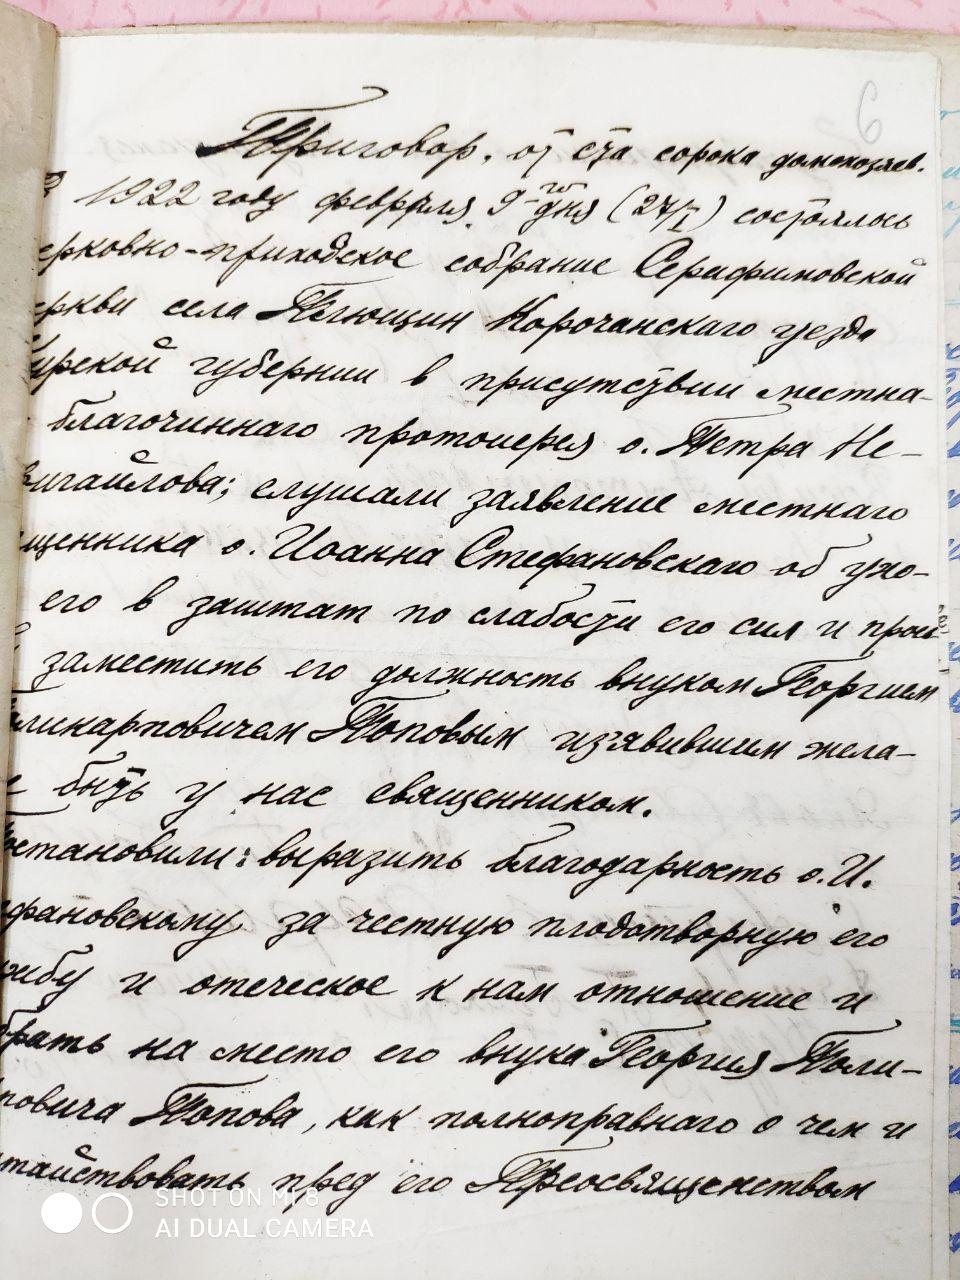 6
Приговор. от ста сорока домохозяев.
В 1922 году февраля 9-го дня (27/I) состоялось
ерковно-приходское собрание Серафимовской
еркви села Корочанскаго уезда
урской губернии в присутствии местна-
благочиннаго протоиерея о. Петра Не-
вигайлова; слушали заявление местнаго
щенника о. Иоанна Стефановскаго об ухо-
его в заштат по слабости его сил и прось
заместить его должность внуком Георгием
оликарповичем Поповым изъявившим жела-
е быть у нас священником.
Постановили: выразить благодарность о. И.
ефановскому за честную плодотворную его
ужбу и отеческое к нам отношение и
брать на место его внука Георгия Поли-
повича Попова, как полноправнаго о чем и
тайствовать пред его Преосвященством
SHOT ON MI 8
AI DUAL CAMERA